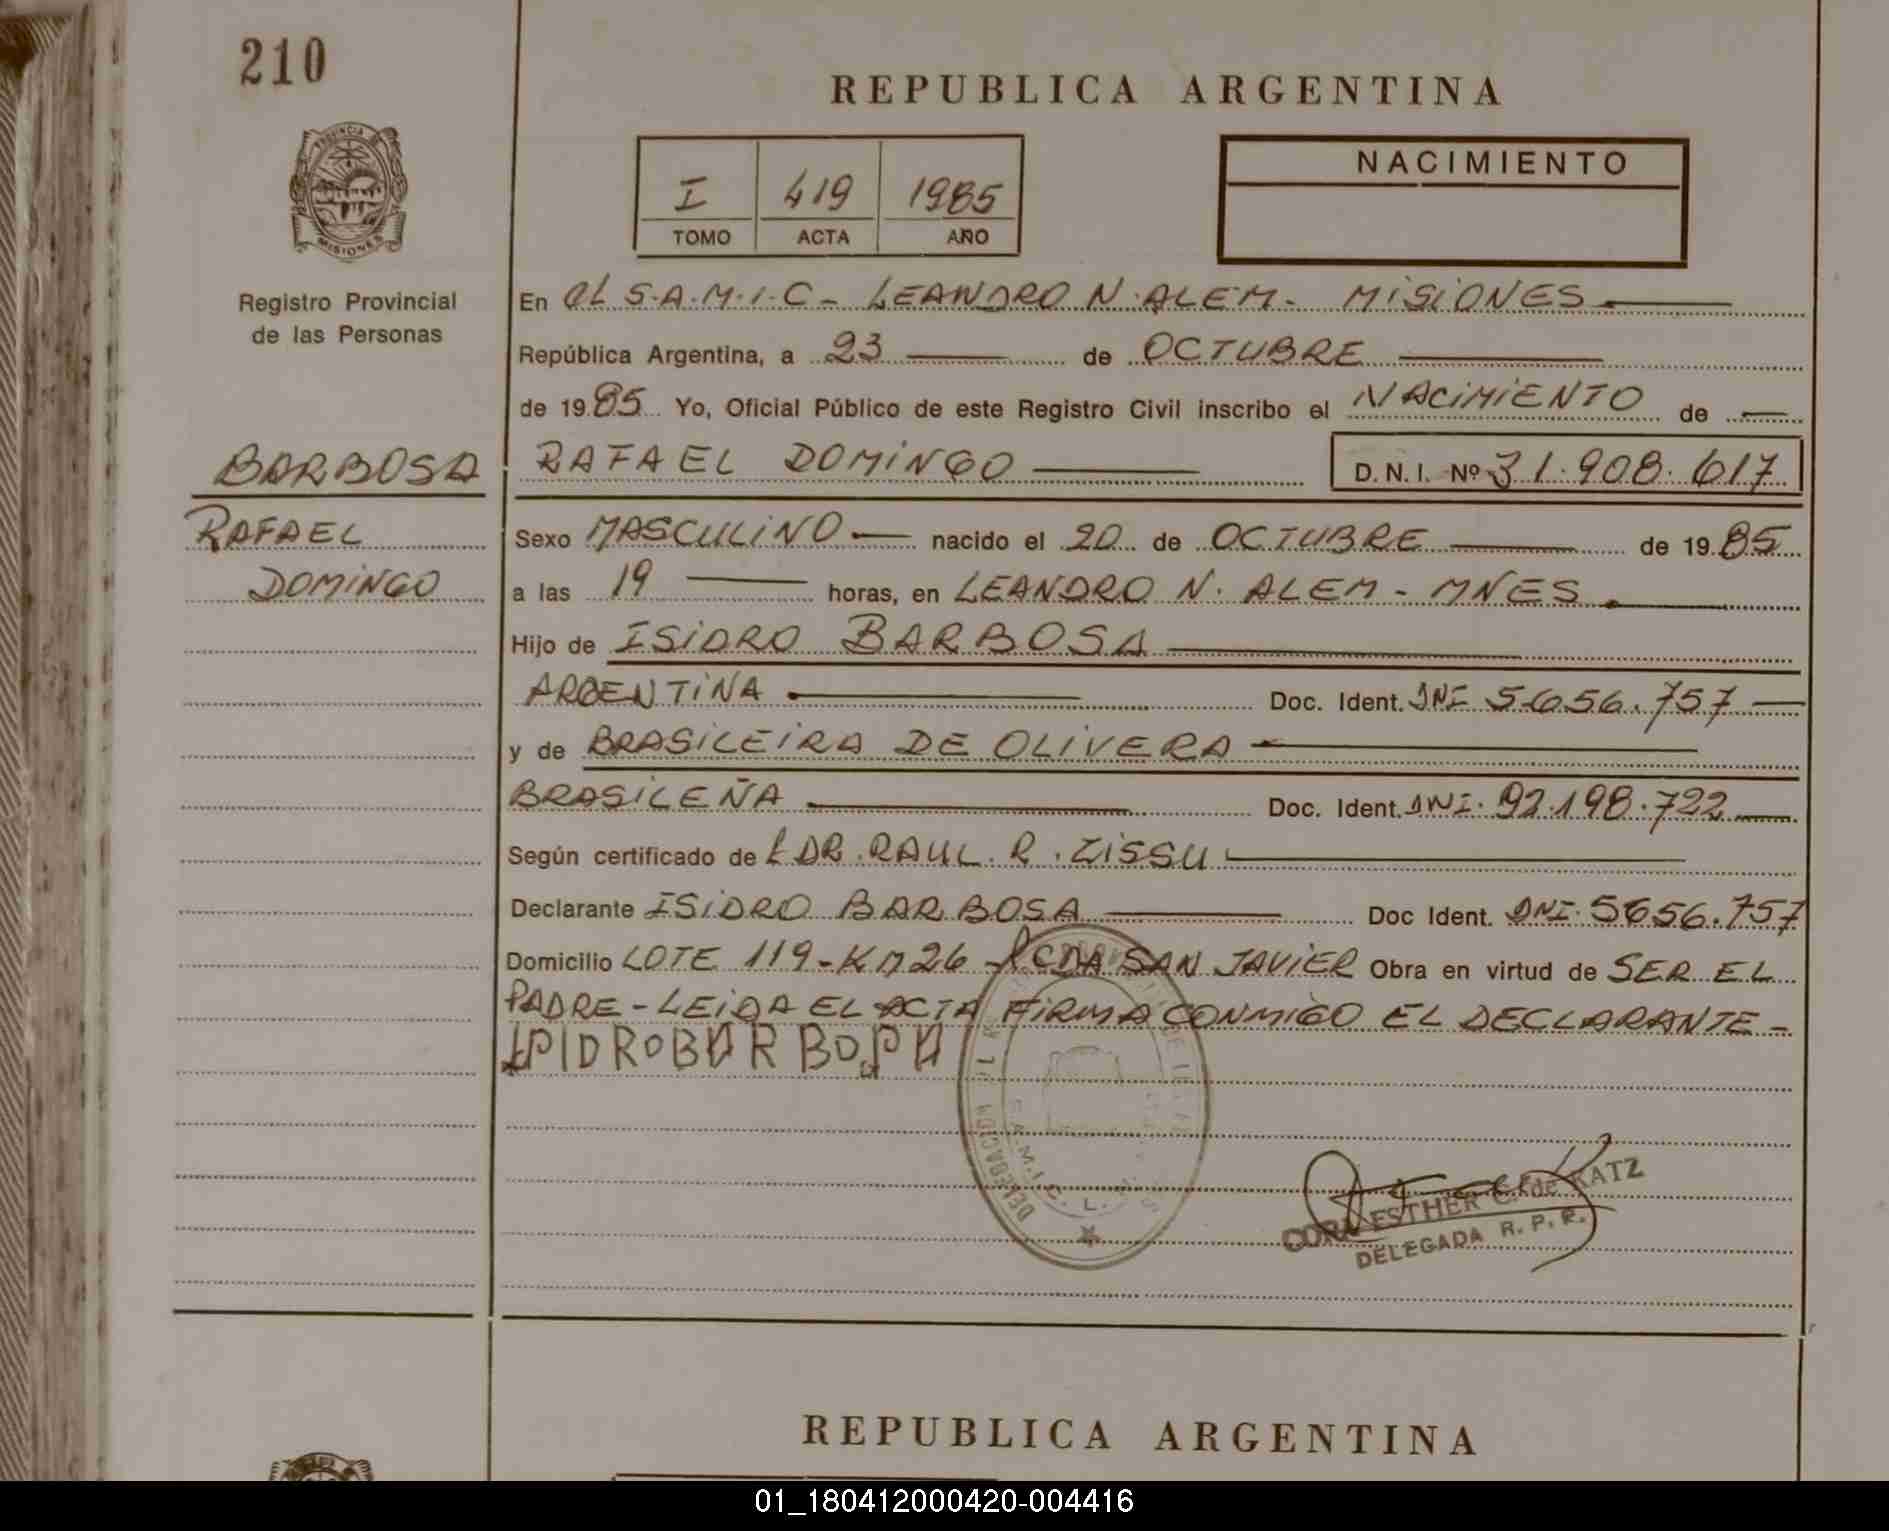 210
REPUBLICA ARGENTINA
PROVINCIA DE
MISIONES
Registro Provincial
de las Personas
I 419 1985
TOMO ACTA AÑO
NACIMIENTO
En el S.A.M.I.C - LEANDRO N. ALEM - MISIONES
República Argentina, a 23 de OCTUBRE
de 1985 Yo, Oficial Público de este Registro Civil inscribo el NACIMIENTO de
BARBOSA
RAFAEL DOMINGO D.N.I. Nº 31.908.617
RAFAEL
DOMINGO
Sexo MASCULINO nacido el 20 de OCTUBRE de 1985
a las 19 horas, en LEANDRO N. ALEM - MNES
Hijo de ISIDRO BARBOSA
ARGENTINA Doc. Ident. DNI 5.656.757
y de BRASILEIRA DE OLIVERA
BRASILEÑA Doc. Ident. DNI. 92.198.722
Según certificado de DR. RAUL R. ZISSU
Declarante ISIDRO BARBOSA Doc Ident. DNI. 5656.757
Domicilio LOTE 119 - KM 26 - SAN JAVIER Obra en virtud de SER EL
PADRE - LEIDA EL ACTA FIRMA CONMIGO EL DECLARANTE -
ISIDRO BARBOSA
DELEGACION
S.A.M.I.C. L.
ESTHER C. de KATZ
DELEGADA R. P. P.
REPUBLICA ARGENTINA
01_180412000420-004416